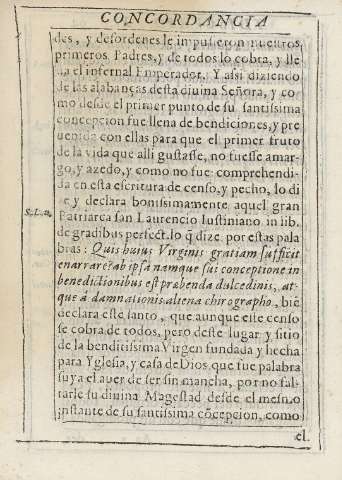 CONCORDANCIA
des, y desordenes le impusieron nuestros
primeros Padres, y de todos lo cobra, y lle
ua el infernal Emperador. Y assi diziendo
de las alabanças desta diuina Señora, y co
mo desde el primer punto de su santissima
concepcion fue llena de bendiciones, y pre
uenida con ellas para que el primer fruto
de la vida que alli gustasse, no fuesse amar-
go, y azedo, y como no fue comprehendi-
da en esta escritura de censo, y pecho, lo di
ze y declara bonissimamente aquel gran
Patriarca san Laurencio Iustiniano in lib.
de gradibus perfect. lo q̃ dize por estas pala
bras: Quis huius Virginis gratiam sufficit
enarrare? ab ipsa namque sui conceptione in
benedictionibus est præbenda dulcedinis, at-
que à damnationis aliena chirographo, biē
declara este santo, que aunque este censo
se cobra de todos, pero deste lugar y sitio
de la benditissima Virgen fundada y hecha
para Yglesia, y casa de Dios, que fue palabra
suya el auer de ser sin mancha, por no fal-
tarle su diuina Magestad desde el mesmo
instante de su santissima cõcepcion, como
el